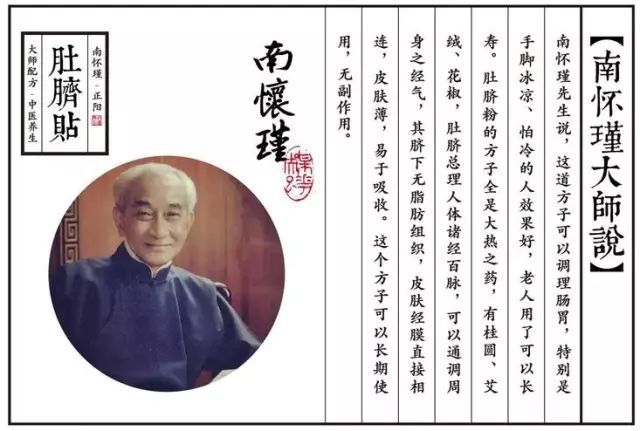 【南怀瑾大师說】
南怀瑾先生说，这道方子可以调理肠胃，特别是
手脚冰凉、怕冷的人效果好，老人用了可以长
寿。肚脐粉的方子全是大热之药，有桂圆、艾
绒、花椒，肚脐总理人体诸经百脉，可以通调周
身之经气，其脐下无脂肪组织，皮肤经膜直接相
连，皮肤薄，易于吸收。这个方子可以长期使
用，无副作用。
南懷瑾
南怀瑾·正阳
肚臍貼
大师配方·中医养生